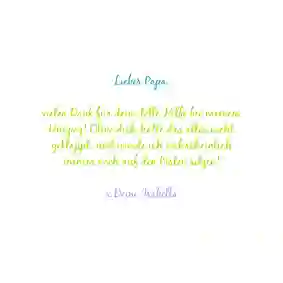 Lieber Papa,
vielen Dank für deine tolle Hilfe bei meinem
Umzug! Ohne dich hätte das alles nicht
geklappt, und würde ich wahrscheinlich
immer noch auf den Kisten sitzen!
Deine Isabella